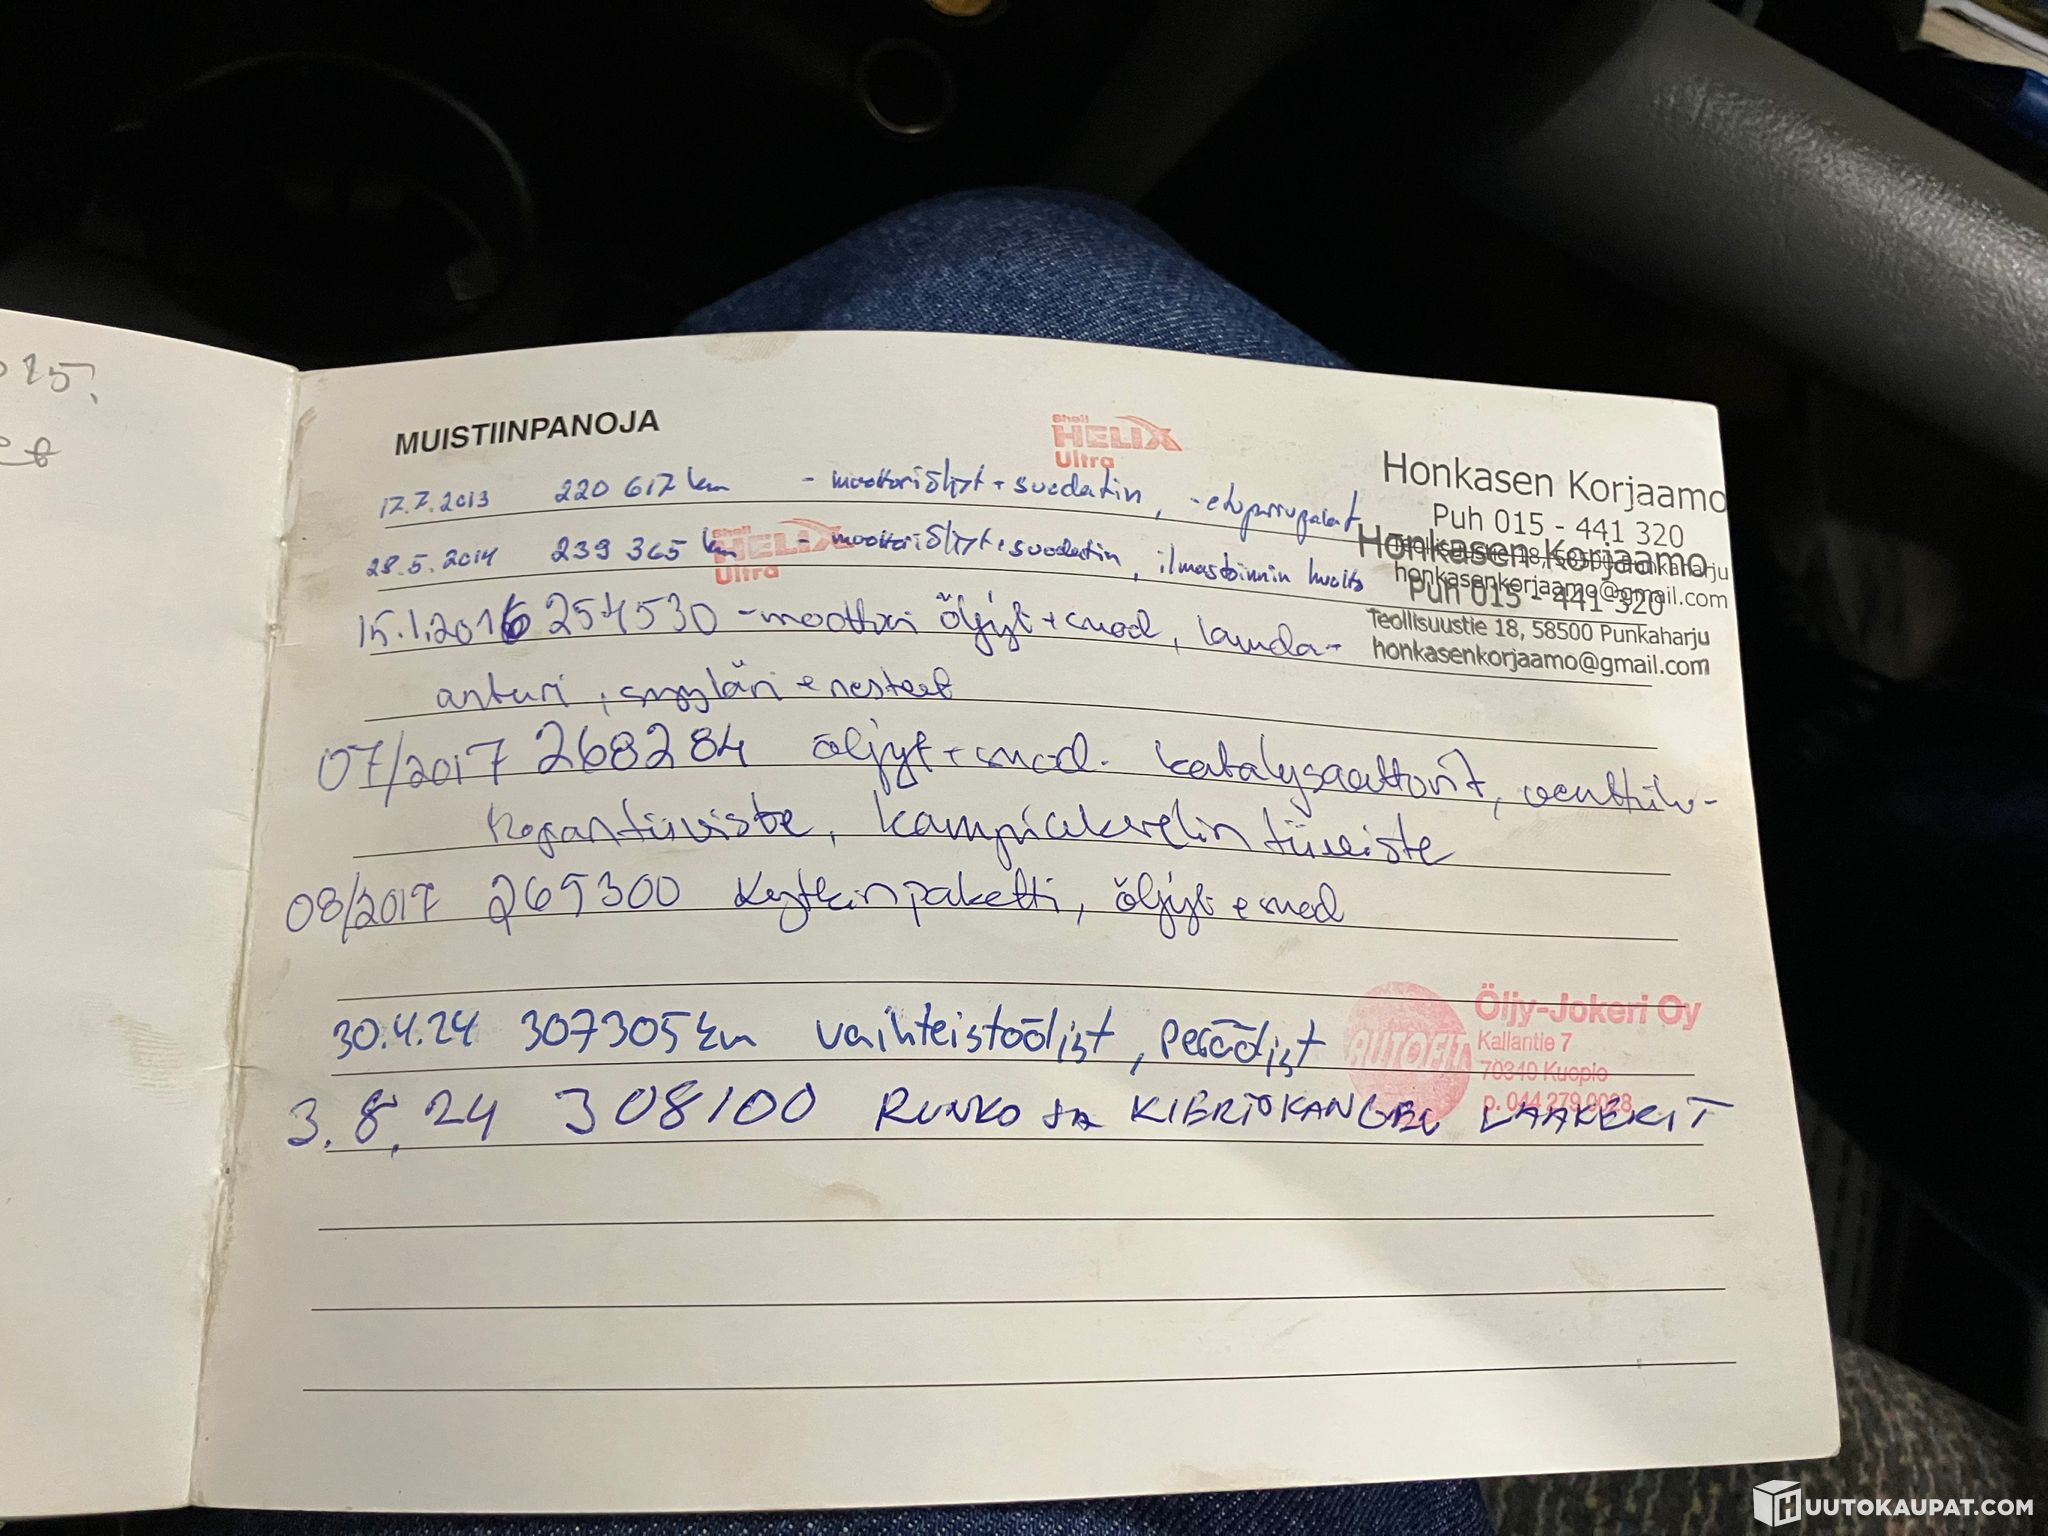 25.
MUISTIINPANOJA
Shell
HELIX
Ultra
Honkasen Korjaamo
Puh 015 - 441 320
honkasenkorjaamo@gmail.com
17.7.2013 220 617 km - moottoriöljyt + suodatin, - etujarrupalat
Shell
HELIX
Ultra
Honkasen Korjaamo
Puh 015 - 441 320
Teollisuustie 18, 58500 Punkaharju
honkasenkorjaamo@gmail.com
28.5.2014 239 365 km - moottoriöljyt + suodatin, ilmastoinnin huolto
15.1.2016 254530 - moottori öljyt + suod, lamda-
anturi, jäähdytinnesteet
07/2017 268284 öljyt + suod. katalysaattorit, venttiili-
kopantiiviste, kampiakselin tiiviste
08/2017 269300 Kytkinpaketti, öljyt + suod
30.4.24 307305 km vaihteistoöljyt, peräöljyt
AUTOFIT
Öljy-Jokeri Oy
Kallantie 7
70340 Kuopio
p. 044 279 0028
3.8.24 308100 RUNKO JA KIERTOKANGEN LAAKERIT
HUUTOKAUPAT.COM